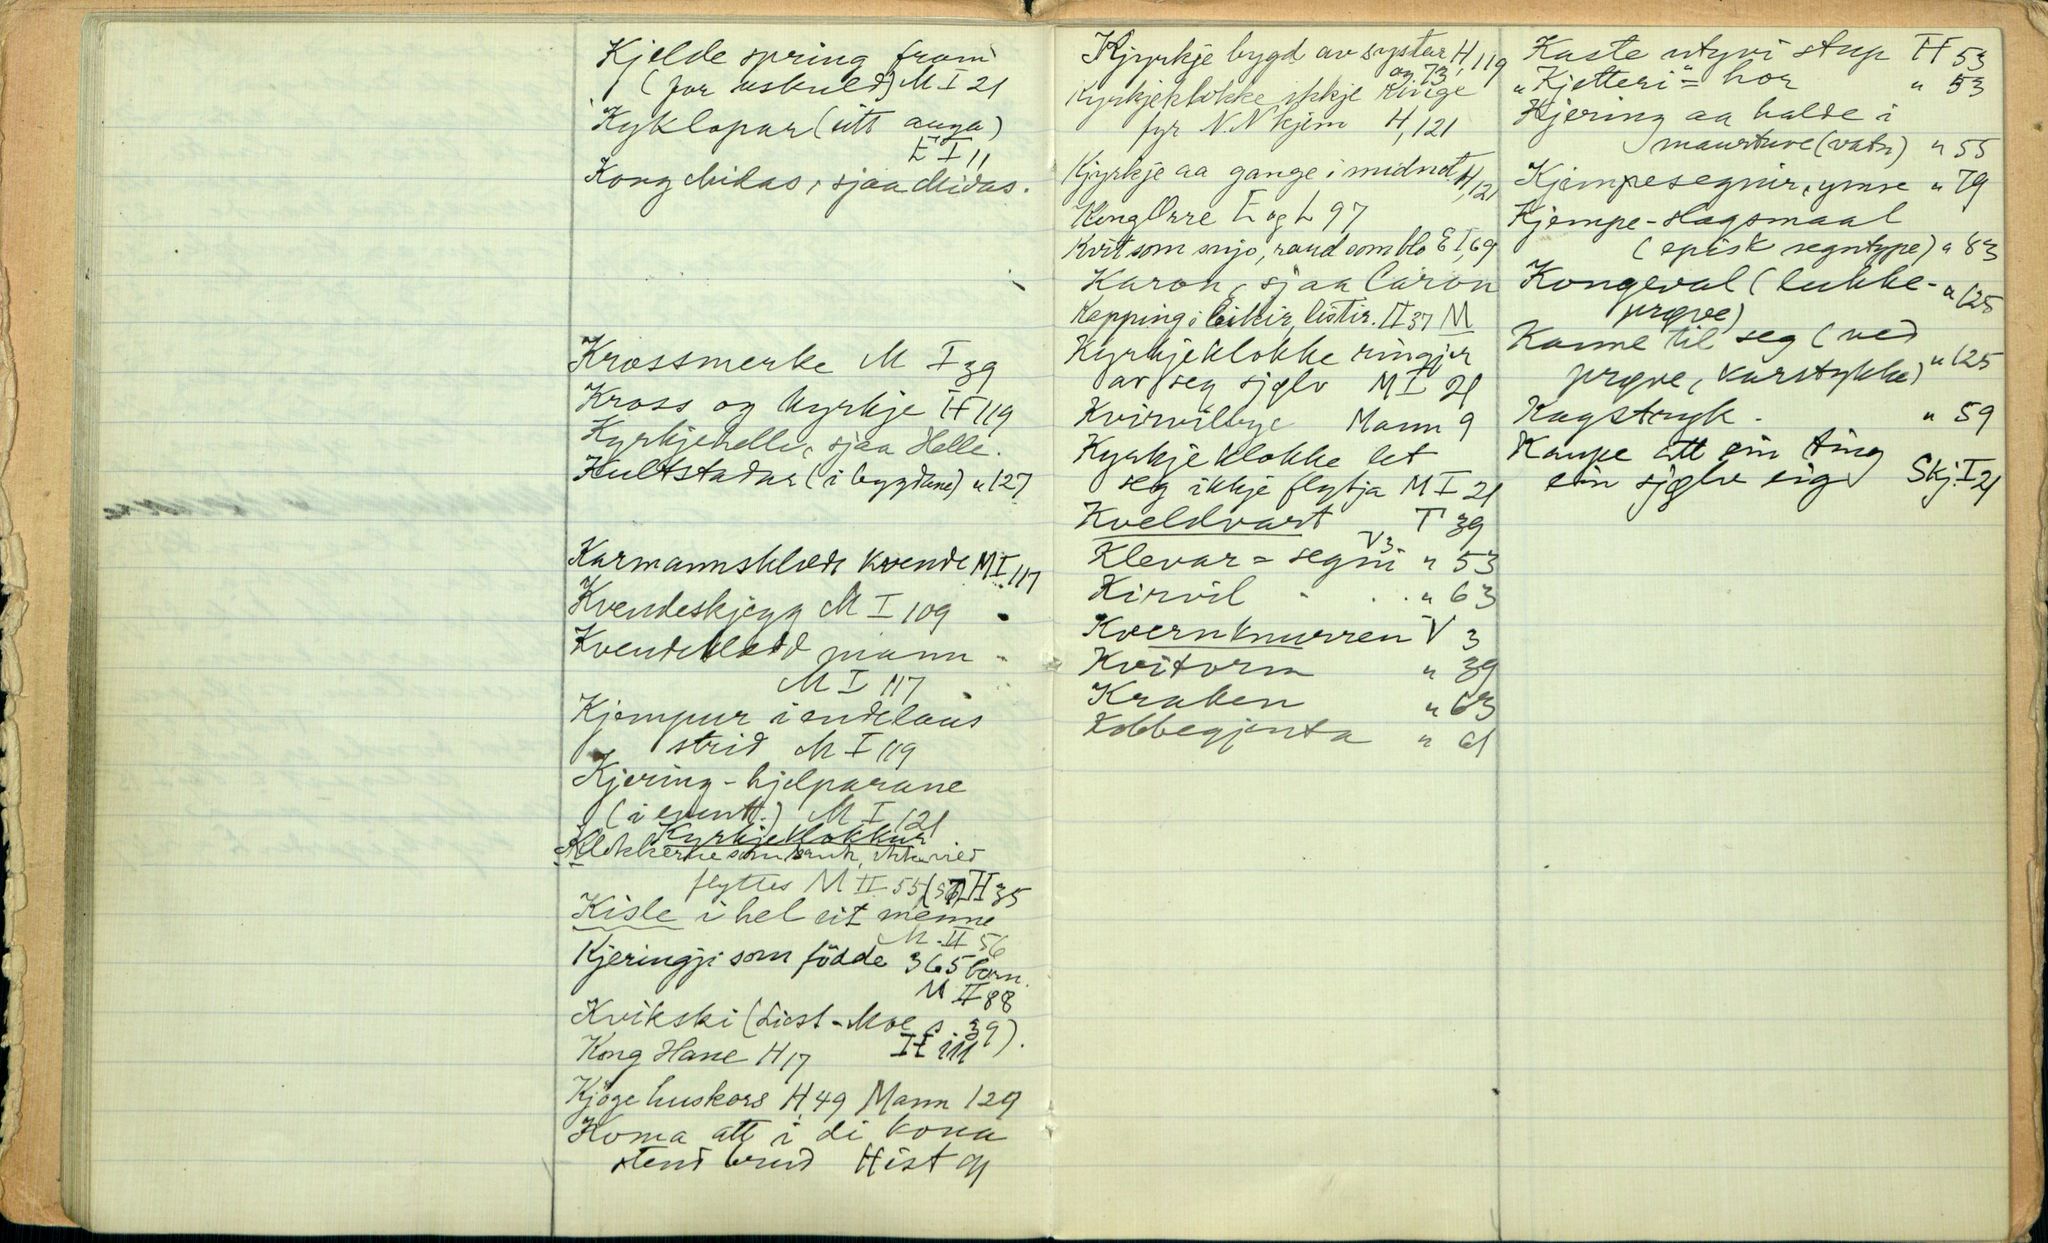 Kjelde spring fram
(for uskuld) M I 21
Kyklopar (itt auga)
E I 11
Kong Midas, sjaa Midas.
Krossmerke M I 39
Kross og kyrkje H 119
Kyrkjehelle, sjaa Helle.
Kultstadar (i bygdane) " 127
Karmannsklædt kvende M I 117
Kvendeskjegg M I 109
Kvendeklædd mann
M I 117
Kjempur i endelaus
strid M I 119
Kjering-hjelparane
(i event.) M I 121
Kyrkjeklokkur
Klokkerne som sank, ikke vied
flyttes M II 55 H 35
Kisle i hel eit menne
M. II 56
Kjeringji som födde 365 born.
M II 88
Kvikski (Liest-Moe s. 39).
Kong Hane H 17 II 111
Kjöge huskors H, 49 Mann 129
Koma att i di kona
stend brud Hist 91
Kjyrkje bygd av systar H, 119
og 73,
Kyrkjeklokke ikkje ringe
fyr N N kjem H, 121
Kjyrkje aa gange i midnat H, 121
Kong Orre E og L 97
Kvit som snjo, raud som blo E I, 69
Karon, sjaa Caron
Kapping i leikir, listir. II 37 M
Kyrkjeklokke ringjer
av seg sjølv M I 21
Kvirvilbye Mann 9
Kyrkjeklokke let
seg ikkje flytja M I 21
Kveldvart T 39
V 3
Klevar = segni " 53
Kirvil " 63
Kvernknurren V 3
Kvitorm " 39
Kraken " 63
Kobbegjenta " 61
Kaste utyvi stup H 53
"Kjetteri" = hor " 53
Kjering aa halde i
maurtuve (vatn) " 55
Kjempesegnir, ymse " 79
Kjempe-slagsmaal
(episk segntype) " 83
Kongeval (lukke-
prøve) " 125
Kanne til seg (ved
prøve, karstykke) " 125
Kagstryk. " 59
Kaupe att ein ting
ein sjølv eig Skj. I 21